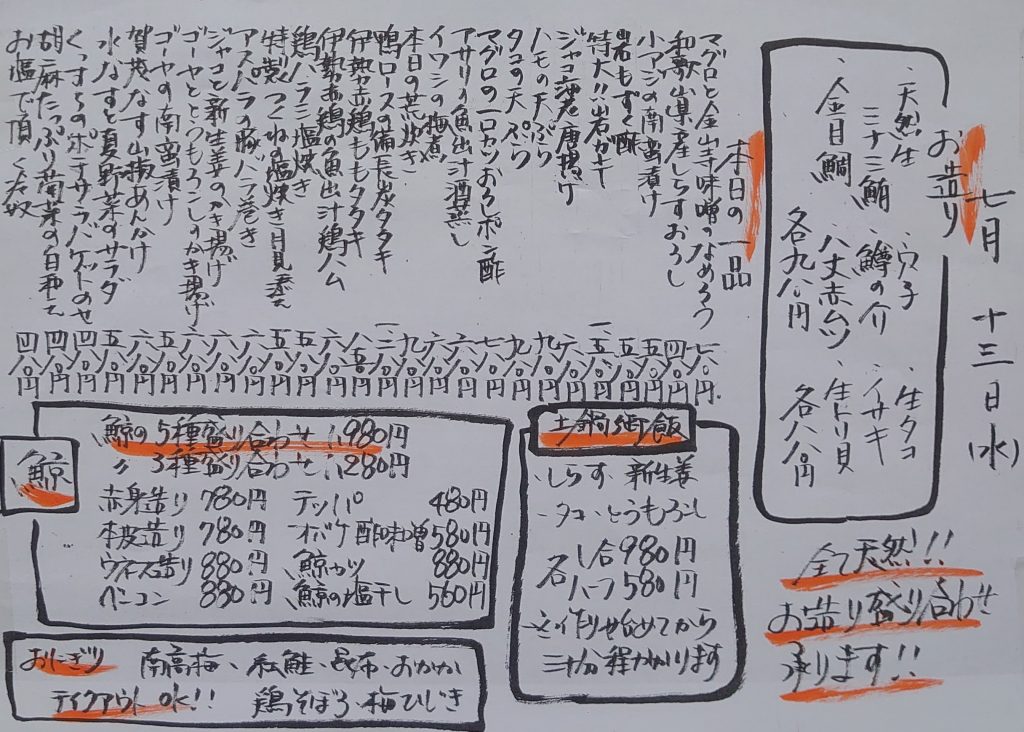 七月 十三日(水)
お造り
・天然生 ・穴子 ・生タコ
三十三鮪 ・鱒の介 ・イサキ
・金目鯛 ・八丈赤ムツ ・生トリ貝
各九八〇円 各八八〇円
全て天然!!
お造り盛り合わせ
承ります!!
本日の一品
マグロと金山寺味噌のなめろう 七八〇円
和歌山県産しらすおろし 四八〇円
小アジの南蛮漬け 五八〇円
岩もずく酢 五八〇円
特大!!岩ガキ
ジャコ海老唐揚げ 六八〇円
ハモの天ぷら 九八〇円
タコの天ぷら 九八〇円
マグロの一口カツおろしポン酢 七八〇円
アサリの魚出汁酒蒸し 六八〇円
イワシの梅煮 六八〇円
本日の荒炊き 九八〇円
鴨ロースの備長炭タタキ
伊勢赤鶏ももタタキ
伊勢赤鶏の魚出汁鶏ハム 六八〇円
鶏ハラミ塩焼き 五八〇円
特製つくねの塩焼き月見添え
アスパラの豚バラ巻き 六八〇円
ジャコと新生姜のかき揚げ 六八〇円
ゴーヤととうもろこしのかき揚げ 六八〇円
ゴーヤの南蛮漬け
賀茂なす山椒あんかけ
水なすと夏野菜のサラダ
くんすらのポテサラ バケットのせ 四八〇円
胡麻たっぷり
お塩で頂く冷奴 四八〇円
土鍋御飯
・しらす 新生姜
・タコ・とうもろこし
各 1合 980円
ハーフ 580円
※作り始めてから
三十分程かかります
鯨
鯨の5種盛り合わせ 1,980円
〃 3種盛り合わせ 1,280円
赤身造り 780円 テッパ 480円
本皮造り 780円 オバケ酢味噌 580円
ウネス造り 880円 鯨カツ 880円
ベーコン 880円 鯨の塩干し 560円
おにぎり 南高梅、紅鮭・昆布・おかか
テイクアウトOK!! 鶏そぼろ・梅ひじき